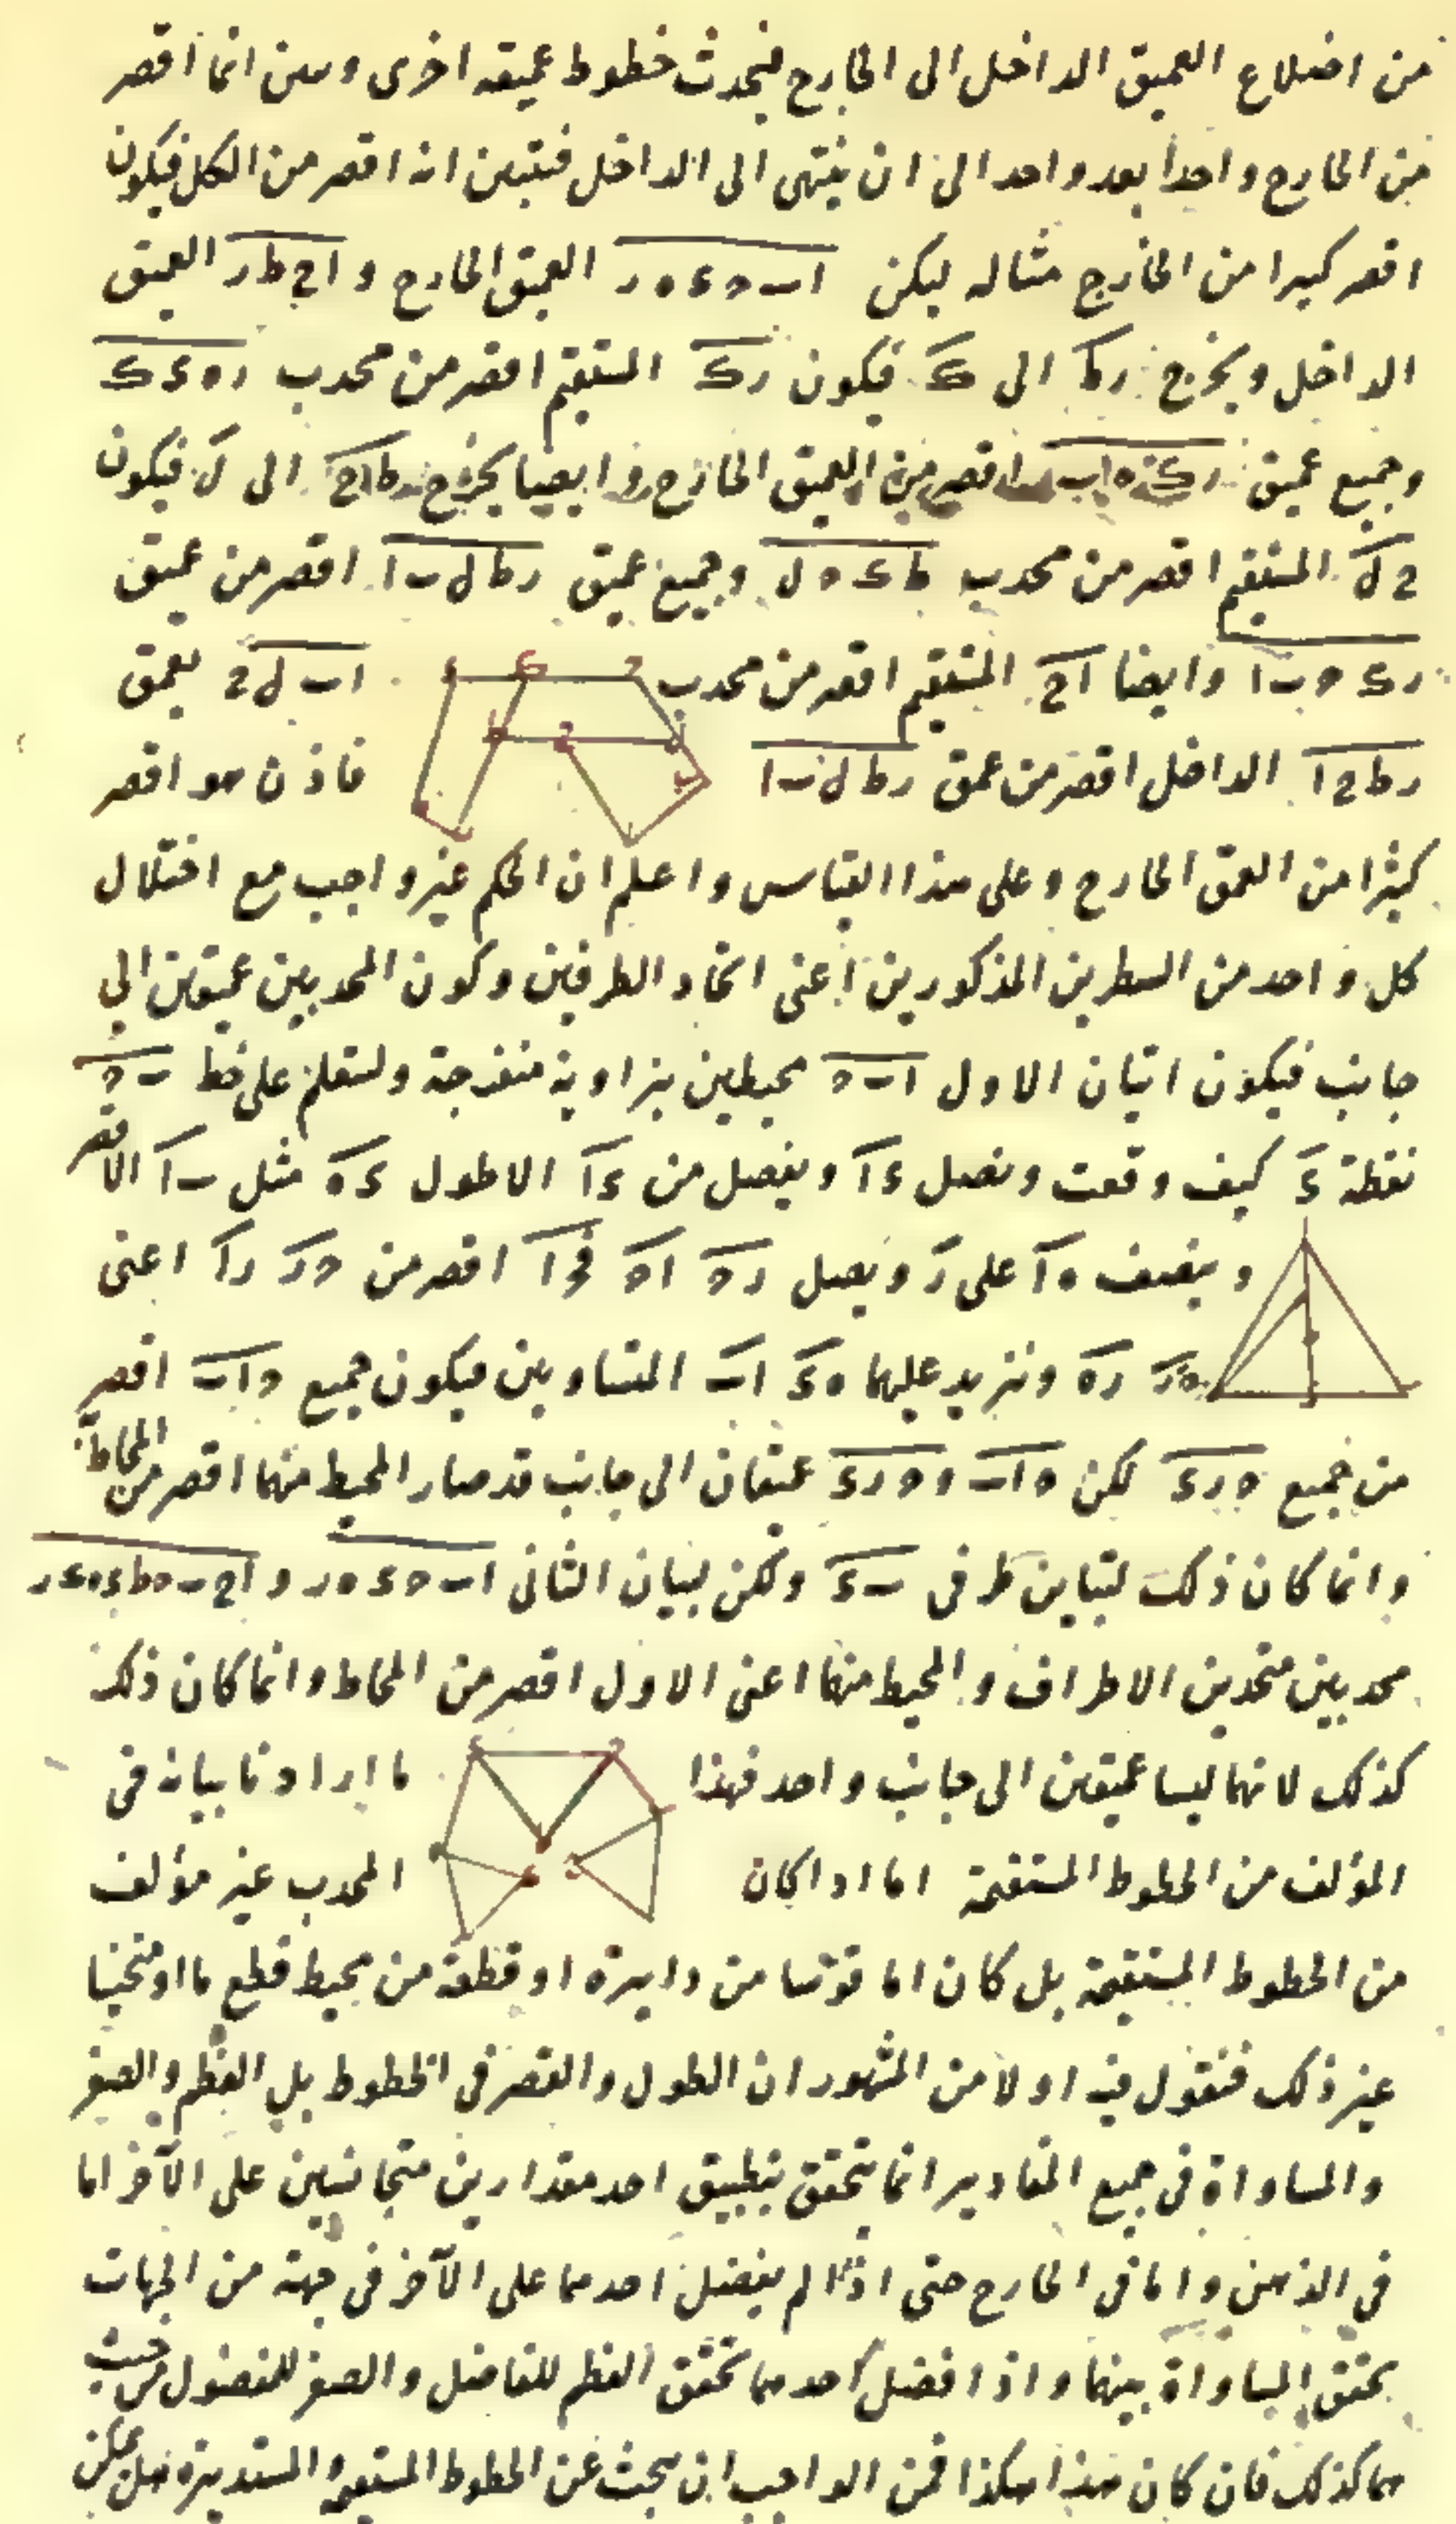 من اضلاع العميق الداخل الى الخارج فيحدث خطوط عميقه اخرى وىىىن انها اقصر
من الخارج واحدا بعد واحد الى ان ينتهى الى الداخل فتبين انه اقصر من الكل فيكون
اقصر كثيرا من الخارج مثاله ليكن ا ب ح د ه ر العميق الخارج و ا ح ط ر العميق
الداخل ويخرج ر ط الى ك فيكون ر ك المستقيم اقصر من محدب ر ه د ك
وجميع عميق ر ك ح ب ا اقصر من العميق الخارج وايضا يخرج ط ح الى ل فيكون
ط ل المستقيم اقصر من محدب ط ك ح ل وجميع عميق ر ط ل ب ا اقصر من عميق
ر ك ح ب ا وايضا ا ح المستقيم اقصر من محدب ا ب ل ح فعمق
ر ط ح ا الداخل اقصر من عمق ر ط ل ب ا فاذن هو اقصر
كثيرا من العمق الخارج وعلى هذا القياس واعلم ان الحكم غير واجب مع اختلال
كل واحد من الشرطين المذكورين اعنى اتحاد الطرفين وكون المحدبين عميقين الى
جانب فيكون اتيان الاول ا ب ح محيطين بزاوية منفرجة ولنتعلم على خط ب ح
نقطة د كيف وقعت ونصل د ا ويفصل من د ا الاطول د ه مثل ب ا الاقصر
وينصف ه ا على ر ويصل ر ح ا ح فـ ح ا اقصر من ح ر ر ا اعنى
ح ر ر ه ونزيد عليهما ه د ا ب المتساويين فيكون جميع ح ا ب اقصر
من جميع ح ر د لكن ح ا ب و ح ر د عميقان الى جانب قد صار المحيط منهما اقصر من المحاط
وانما كان ذلك لتباين طرفى ب د ولكن لبيان الثانى ا ب ح د ه ر و ا ح ب ح ط د ه ى ر
محدبين متحدين الاطراف والمحيط منهما اعنى الاول اقصر من المحاط وانما كان ذلك
كذلك لانهما ليسا عميقين الى جانب واحد فهذا ما اردنا بيانه فى
المؤلف من الخطوط المستقيمة اما اذا كان المحدب غير مؤلف
من الخطوط المستقيمة بل كان اما قوسا من دايرة او قطعة من محيط قطع ما او منحنيا
غير ذلك فنقول فيه اولا من المشهور ان الطول والقصر فى الخطوط بل العظم والصغر
والمساواة فى جميع المقادير انما يتحقق بتطبيق احد مقدارين متجانسين على الآخر اما
فى الذهن واما فى الخارج حتى اذا لم يفضل احدهما على الآخر فى جهة من الجهات
تحقق المساواة بينهما واذا فضل احدهما تحقق العظم للفاضل والصغر للمفضول من حيث
هما كذلك فان كان هذا هكذا فمن الواجب ان يبحث عن الخطوط المستقيمة والمستديرة هل يمكن